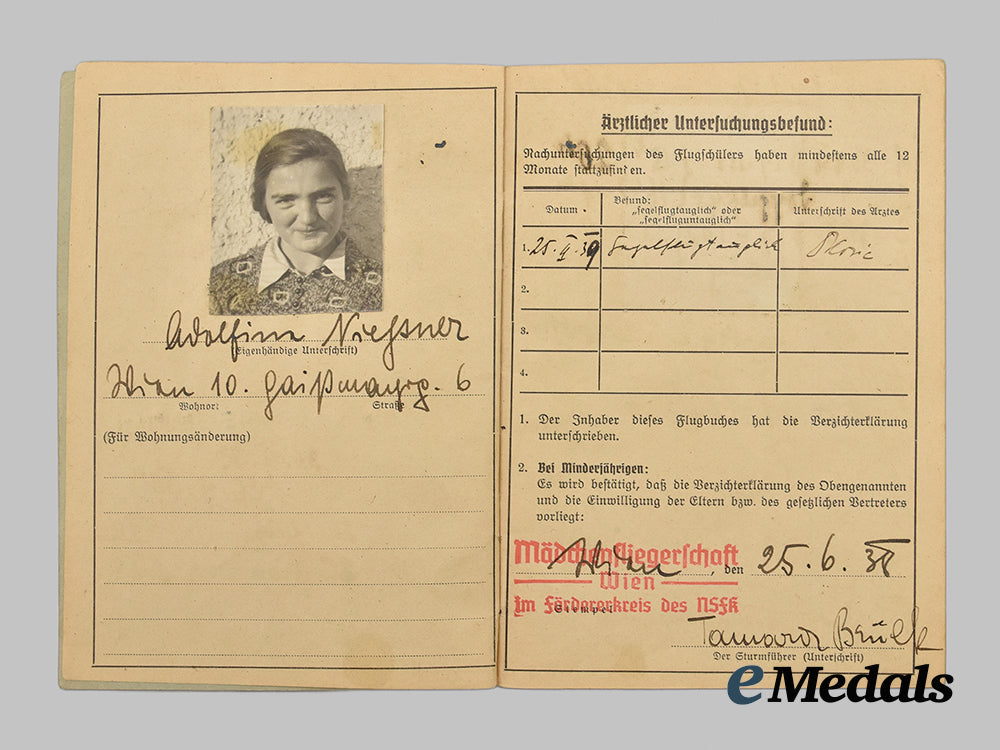 Adolfine Nießner
(Eigenhändige Unterschrift)
Wien 10. Gaißmayrg. 6
Wohnort Straße
(Für Wohnungsänderung)
Ärztlicher Untersuchungsbefund:
Nachuntersuchungen des Flugschülers haben mindestens alle 12
Monate stattzufinden.
Datum
Befund:
„segelflugtauglich" oder
„segelfluguntauglich"
Unterschrift des Arztes
1. 25. II. 39 Segelflugtauglich
2.
3.
4.
1. Der Inhaber dieses Flugbuches hat die Verzichterklärung
unterschrieben.
2. Bei Minderjährigen:
Es wird bestätigt, daß die Verzichterklärung des Obengenannten
und die Einwilligung der Eltern bzw. des gesetzlichen Vertreters
vorliegt:
Mädchenfliegerschaft
Wien
im Fördererkreis des NSFK
Wien, den 25. 6. 38
Stempel
Tamara
Der Sturmführer (Unterschrift)
eMedals